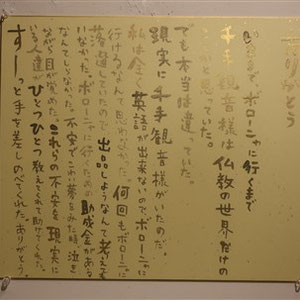 ありがとう
ボローニャに行くまで
千手観音様は仏教の世界だけの
ことかと思っていた。
でも本当は違っていた。
現実に千手観音様がいたのだ。
私は全く英語が出来ないのでボローニャに
行けるなんて思わなかった。何回もボローニャに
落選していたので出品しようなんて考えても
いなかった。ボローニャに行くための助成金がある
なんてしらなかった。不安でこわい夢をみた時、泣き
ながら目が覚めた。これらの不安を現実に
いる人達がひとつひとつ教えてくれて助けてくれた。
すーっと手を差しのべてくれた。ありがとう。